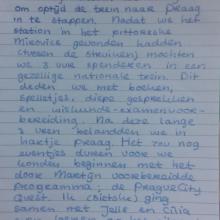 om optijd de trein naar Praag
in te stappen. Nadat we het
station in het pittoreske
Mirovice gevonden hadden
(tussen de struiken) mochten
we 3 uur spendeken in een
gezellige nationale trein. Dit
deden we met boeken,
spelletjes, diepe gesprekken
en wiskunde-examenvoor-
bereiding. Na deze lange
3 uren belandden we in
hartje Praag. Het zou nog
eventjes duren voor we
konden beginnen met het
door Martijn voorbereidde
programma; de Prague City
Quest. Ik (Sietske) ging
samen met Jelle en Cilia